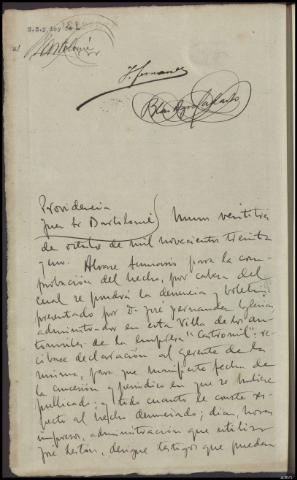 Bartolomé
J. Fernandez
Providencia
Juez Sr Bartolomé Muros veintitres
de octubre de mil novecientos treinta
y uno. Alvarse sumario para la com-
probación del hecho, por cabeza del
cual se pondrá la denuncia y boletin
presentado por D. José Fernandez Iglesias
administrador en esta Villa de los au-
tomoviles de la Empresa "Castromil": re-
cibase declaración al gerente de la
misma, para que manifieste fecha de
la concesión y periodico en que se hubiere
publicado y todo cuanto le conste res-
pecto al hecho denunciado; dias, horas
impresos, administración que utiliza
José Lestón, designe testigos que puedan